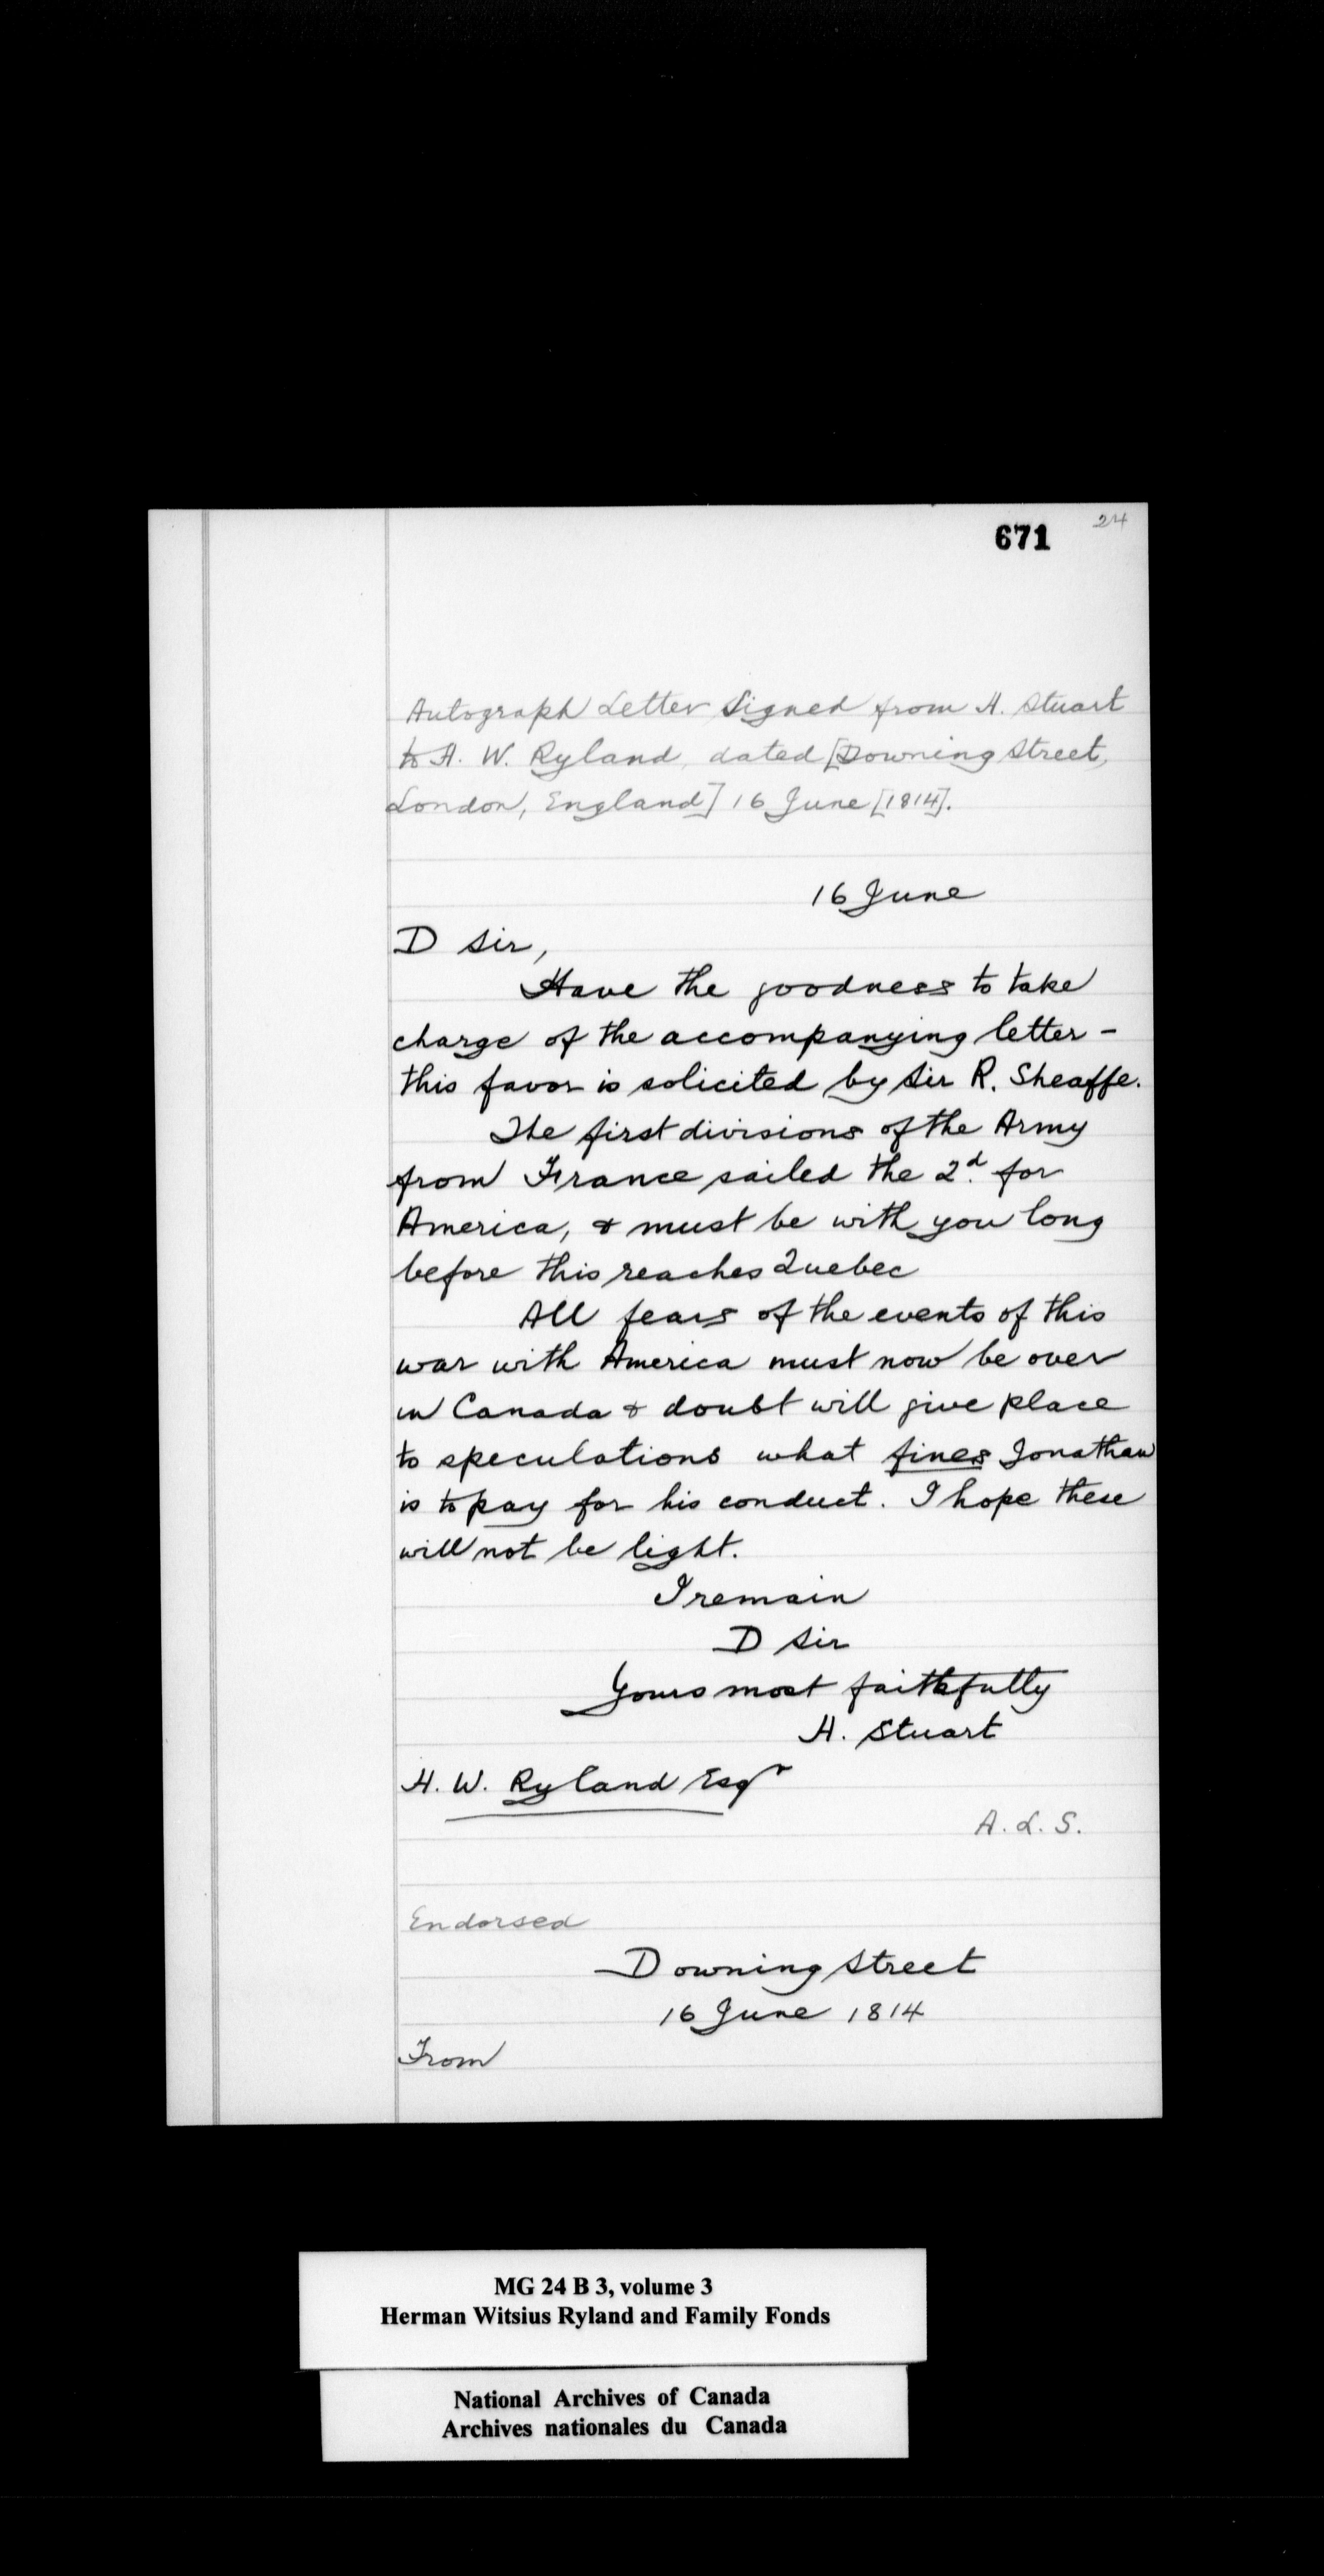 24
671
Autograph Letter Signed from H. Stuart
to H. W. Ryland, dated [Downing Street,
London, England] 16 June [1814].
16 June
D Sir,
Have the goodness to take
charge of the accompanying letter -
this favor is solicited by Sir R. Sheaffe.
The first divisions of the Army
from France sailed the 2d. for
America, & must be with you long
before this reaches Quebec
All fears of the events of this
war with America must now be over
in Canada & doubt will give place
to speculations what fines Jonathan
is to pay for his conduct. I hope these
will not be light.
I remain
D Sir
Yours most faithfully
H. Stuart
H. W. Ryland Esqr
A. L. S.
Endorsed
Downing Street
16 June 1814
From
MG 24 B 3, volume 3
Herman Witsius Ryland and Family Fonds
National Archives of Canada
Archives nationales du Canada